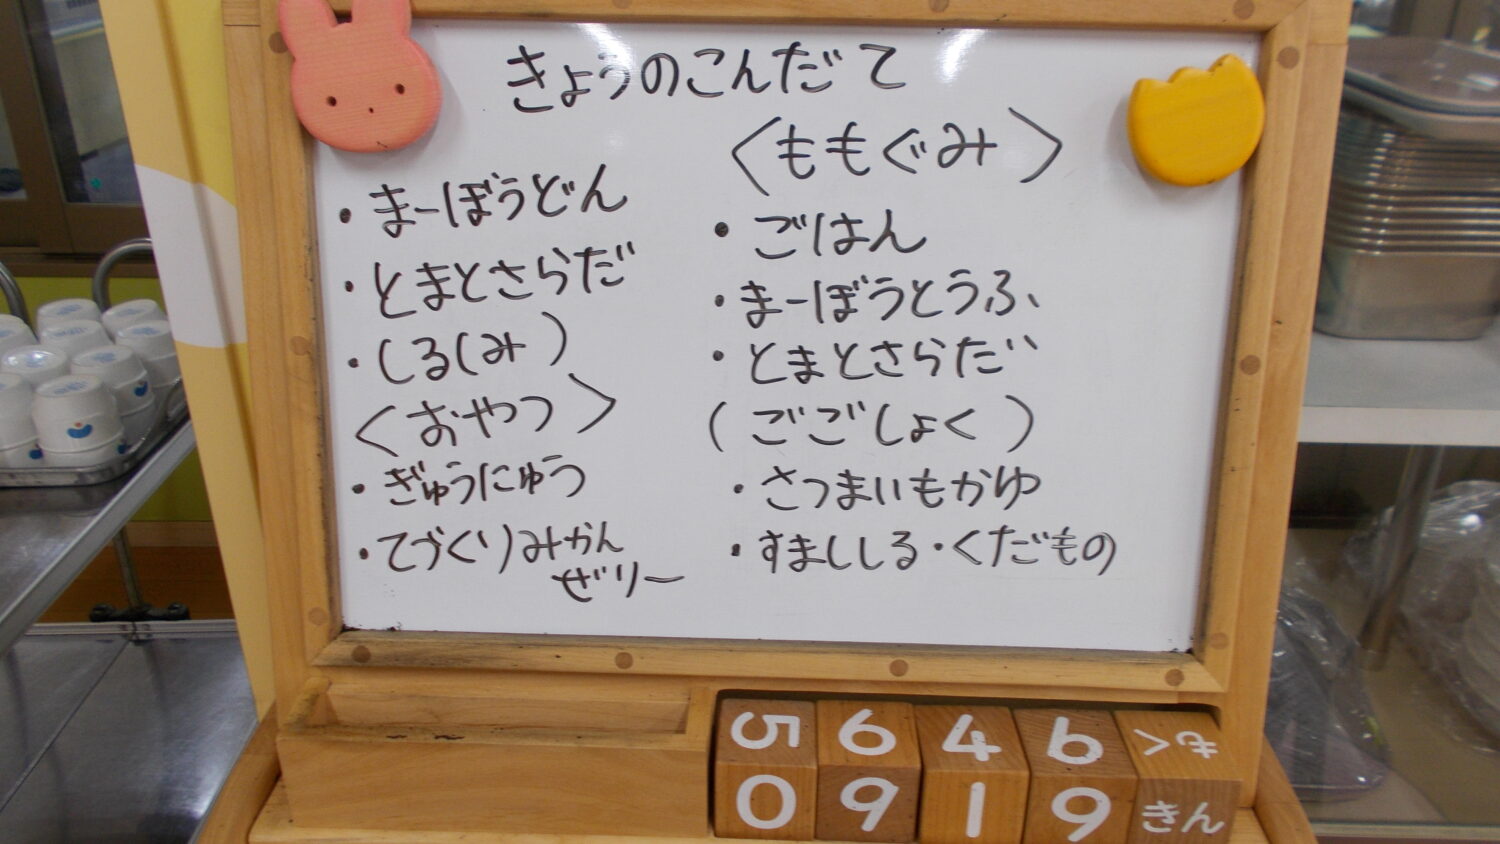 きょうのこんだて
・まーぼうどん
・とまとさらだ
・しる(み)
<おやつ>
・ぎゅうにゅう
・てづくりみかん
ぜりー
<ももぐみ>
・ごはん
・まーぼうとうふ、
・とまとさらだ
(ごごしょく)
・さつまいもかゆ
・すましじる・くだもの
5 6 4 6 もく
0 9 1 9 きん